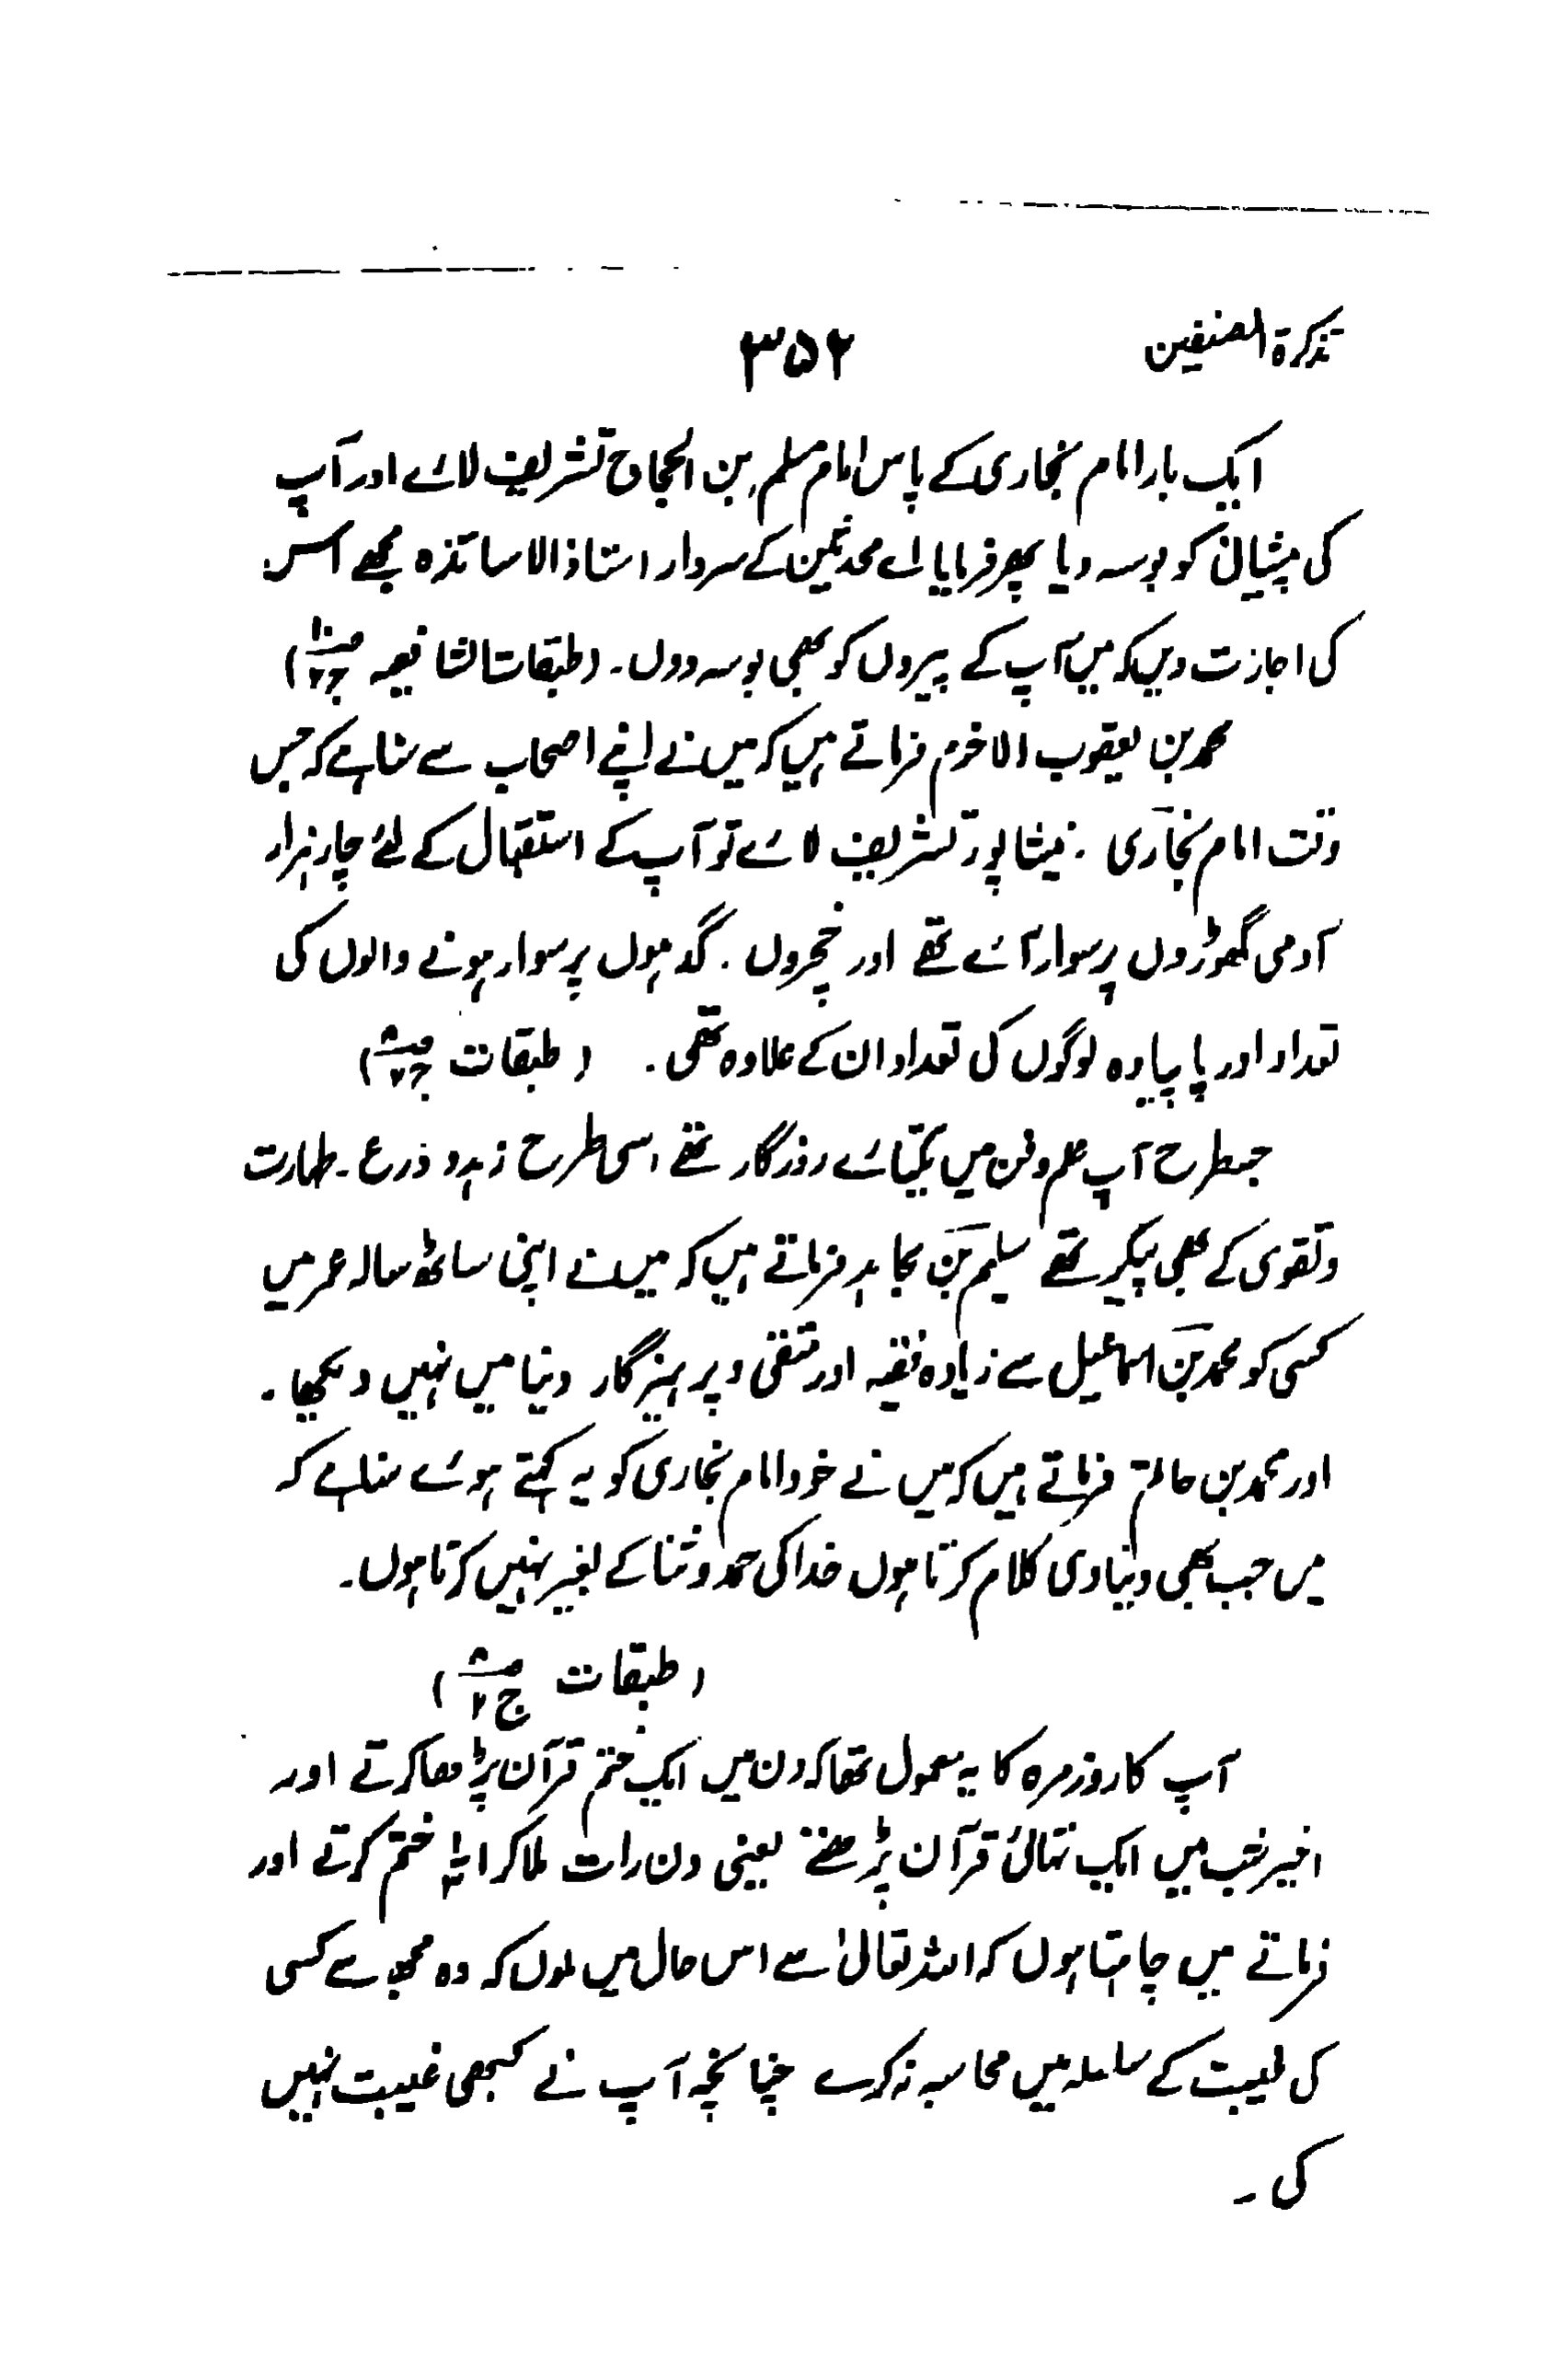 تذکرۃ المصنفین ۳۵۲
ایک بار امام بخاری کے پاس امام مسلم بن الحجاج تشریف لائے اور آپ
کی پیشانی کو بوسہ دیا پھر فرمایا اے محدثین کے سردار استاذ الاساتذہ مجھے اس
کی اجازت دیں کہ میں آپ کے پیروں کو بھی بوسہ دوں۔ (طبقات الشافعیہ)
محمد بن یعقوب الاخرم فرماتے ہیں کہ میں نے اپنے اصحاب سے سنا ہے کہ جس
وقت امام بخاری نیشاپور تشریف لائے تو آپ کے استقبال کے لئے چار ہزار
آدمی گھوڑوں پر سوار آئے تھے اور خچروں . گدہوں پر سوار ہونے والوں کی
تعداد اور پا پیادہ لوگوں کی تعداد ان کے علاوہ تھی . (طبقات ج۲ ص۸)
جسطرح آپ علم و فن میں یکتائے روزگار تھے اسی طرح زہد و ذرع ۔ طہارت
و تقوی کے بھی پیکر تھے سلیم بن مجاہد فرماتے ہیں کہ میں نے اپنی ساٹھ سالہ عمر میں
کسی کو محمد بن اسماعیل سے زیادہ فقیہ اور متقی و پرہیزگار دنیا میں نہیں دیکھا .
اور محمد بن حاتم فرماتے ہیں کہ میں نے خود امام بخاری کو یہ کہتے ہوئے سنا ہے کہ
میں جب بھی دنیاوی کلام کرتا ہوں خدا کی حمد و ثنا کے بغیر نہیں کرتا ہوں۔
(طبقات ج۲ ص۸)
آپ کا روزمرہ کا یہ معمول تھا کہ دن میں ایک ختم قرآن پڑھا کرتے اور
اخیر شب میں ایک تہائی قرآن پڑھتے یعنی دن رات ملا کر ختم کرتے اور
فرماتے میں چاہتا ہوں کہ اللہ تعالیٰ سے اس حال میں ملوں کہ وہ مجھ سے کسی
کی غیبت کے سلسلہ میں محاسبہ نہ کرے چنانچہ آپ نے کبھی غیبت نہیں
کی ۔